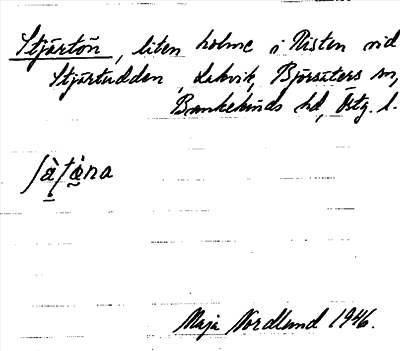 Stjärtön, liten holme i Risten vid
Stjärtudden, Lakvik, Björsäters sn,
Bankekinds hd, Östg. l.
Maja Nordlund 1946.